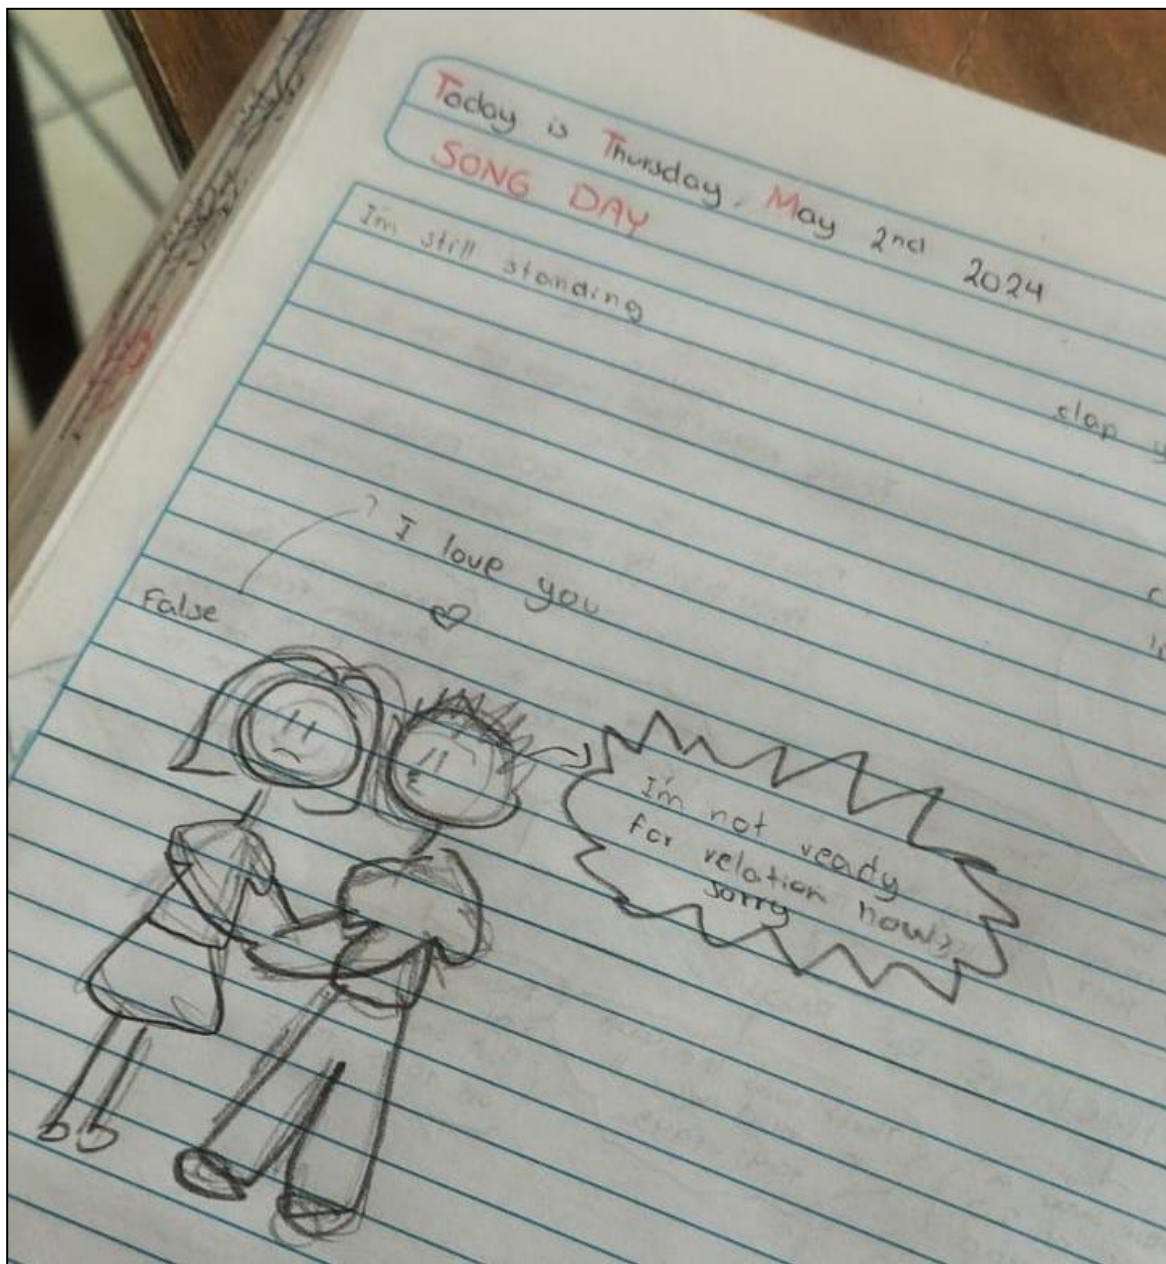 Today is Thursday, May 2nd 2024
SONG DAY
I'm still standing
clap
I love you
False
I'm not ready
for relation now
sorry